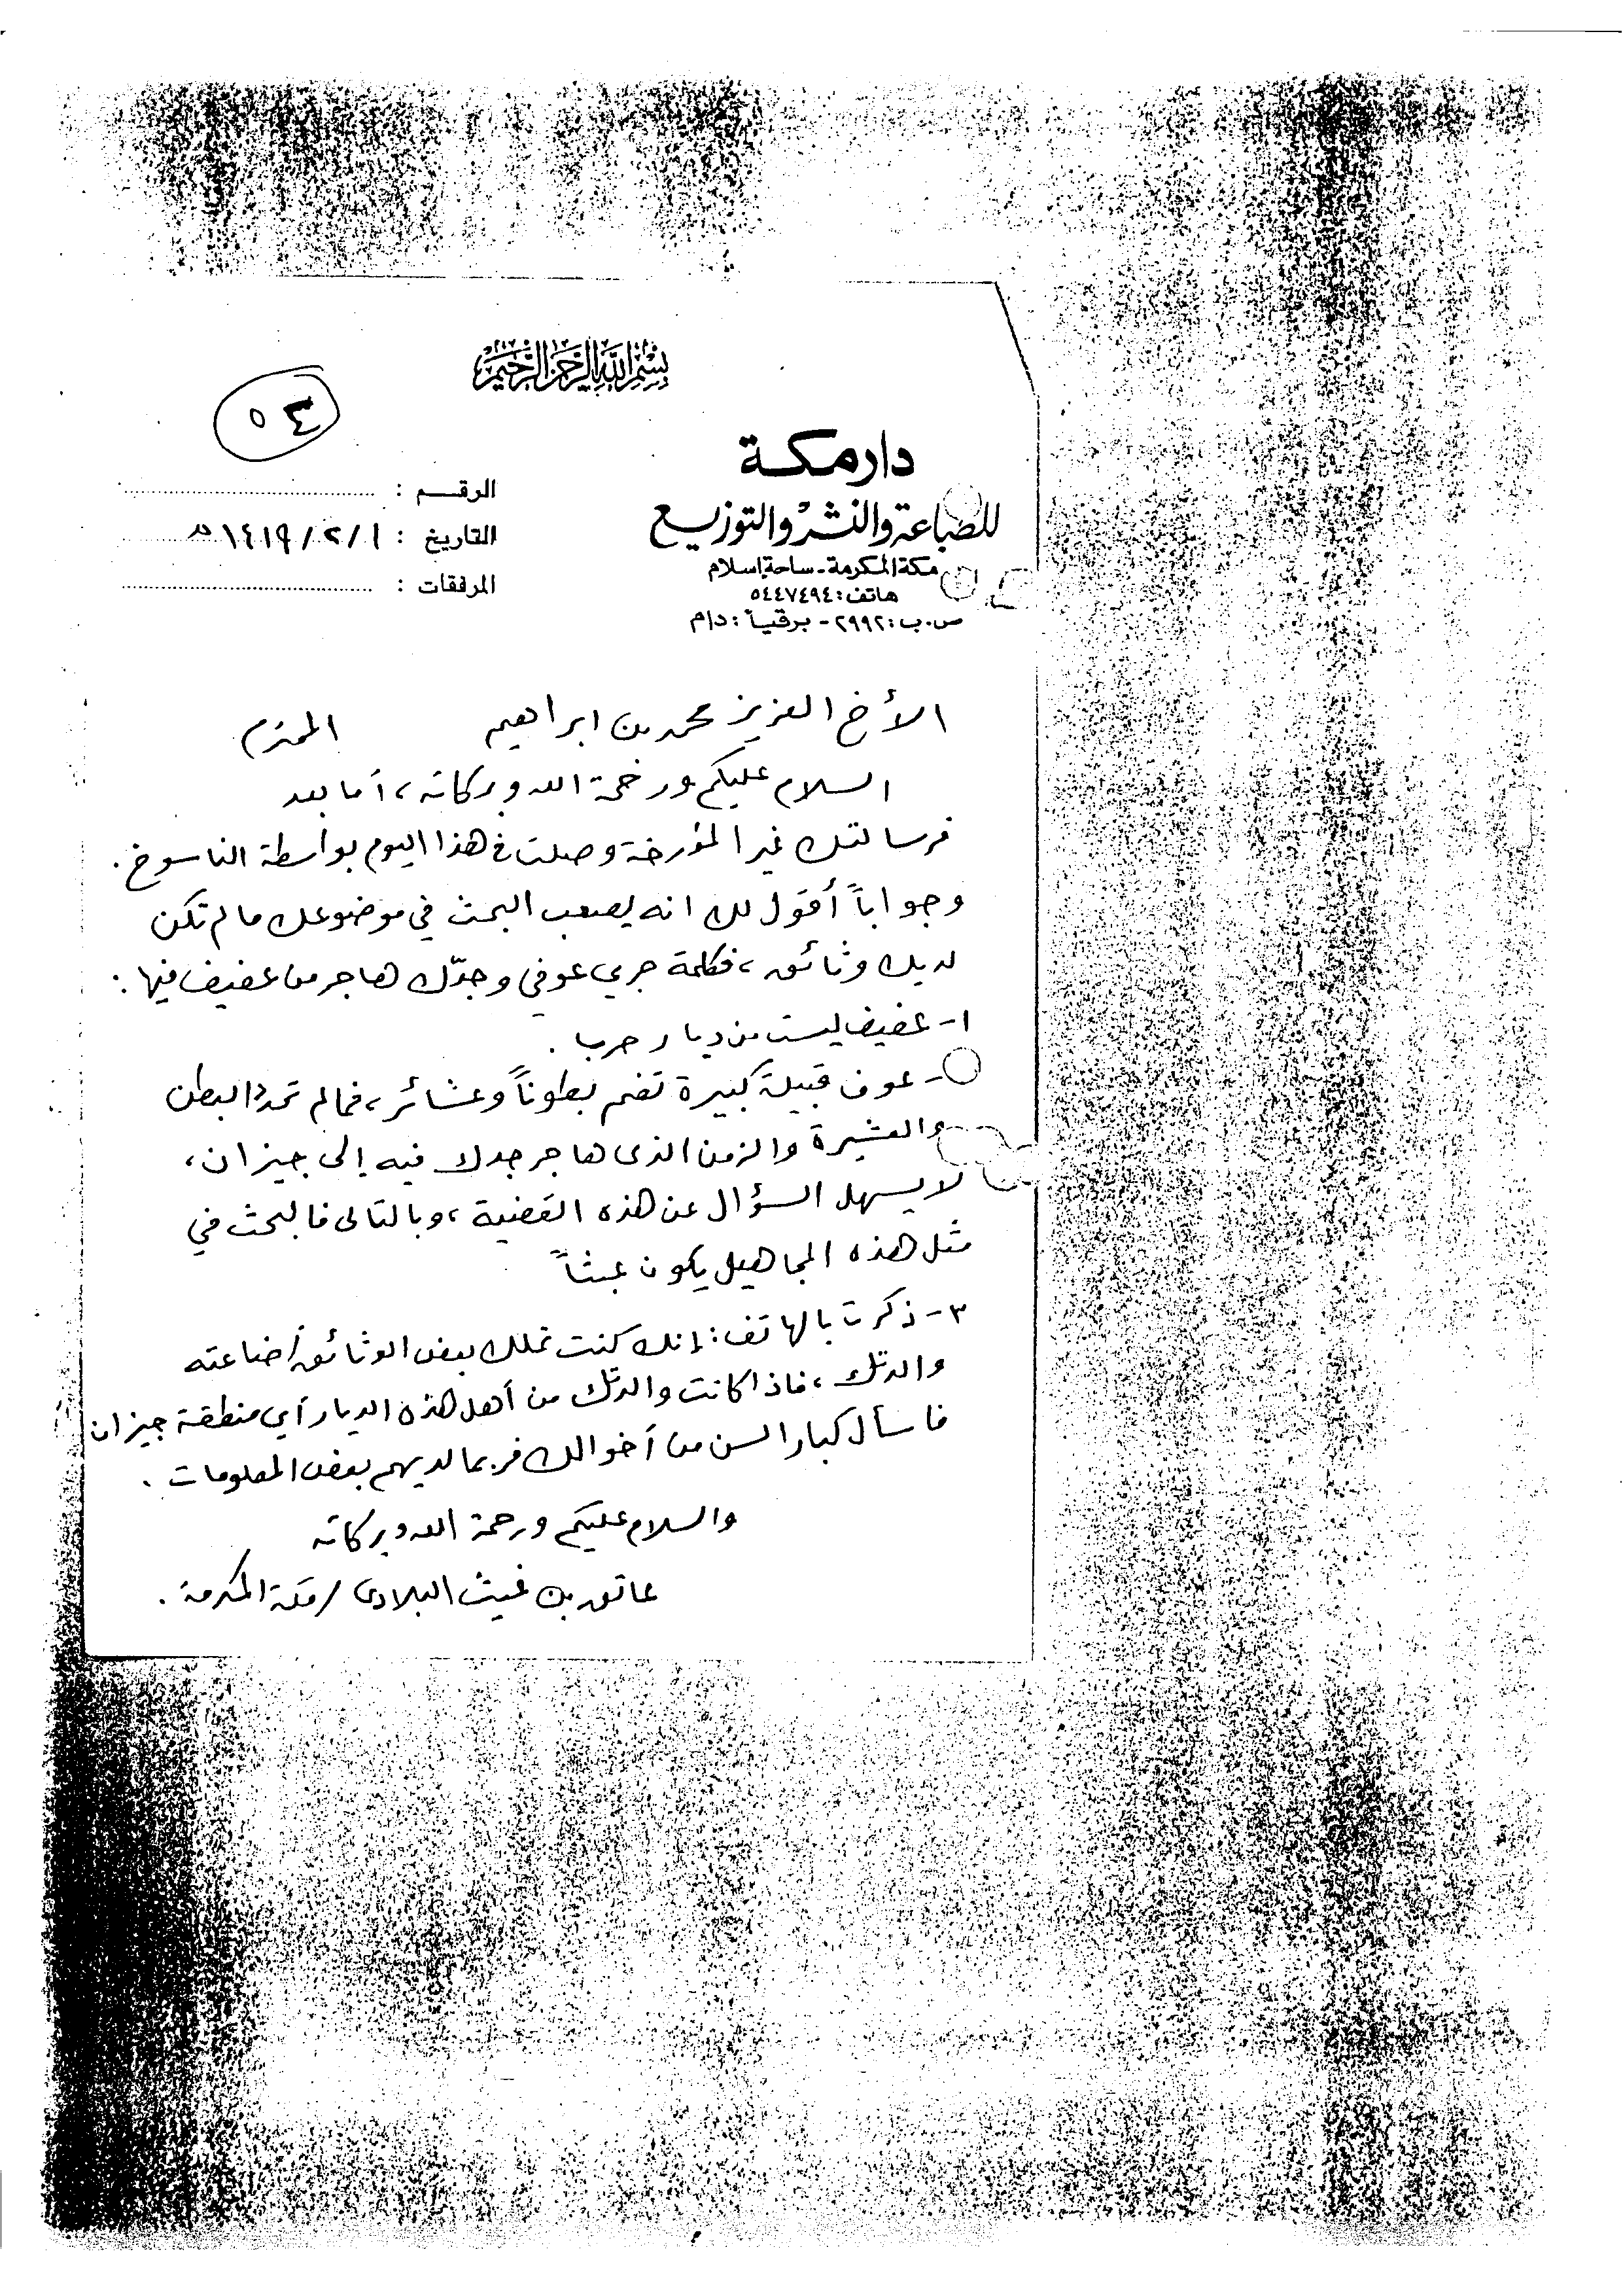 بسم الله الرحمن الرحيم
٥٣
دار مكة
للطباعة والنشر والتوزيع
مكة المكرمة - ساحة إسلام
هاتف: ٥٤٤٧٤٩٤
ص.ب: ٢٩٩٢ - برقياً: دام
الرقم :
التاريخ : ١/٢/١٤١٩هـ
المرفقات :
الأخ العزيز محمد بن ابراهيم المحترم
السلام عليكم ورحمة الله وبركاته، أما بعد
فرسالتك غير المؤرخة وصلت في هذا اليوم بواسطة الناسوخ.
وجواباً أقول لك انه يصعب البحث في موضوعك ما لم تكن
لديك وثائق، فكلمة حربي عوفي وجدّك هاجر من عفيف فيها:
١- عفيف ليست من ديار حرب.
- عوف قبيلة كبيرة تضم بطوناً وعشائر، فما لم تحدد البطن
والعشيرة والزمن الذى هاجر جدك فيه إلى جيزان،
لا يسهل السؤال عن هذه القضية، وبالتالى فالبحث في
مثل هذه المجاهيل يكون عبثاً
٣- ذكرت بالهاتف: إنك كنت تملك بعض الوثائق أضاعته
والدتك، فاذا كانت والدتك من أهل هذه الديار أي منطقة جيزان
فاسأل كبار السن من أخوالك فربما لديهم بعض المعلومات.
والسلام عليكم ورحمة الله وبركاته
عاتق بن غيث البلادى / مكة المكرمة.